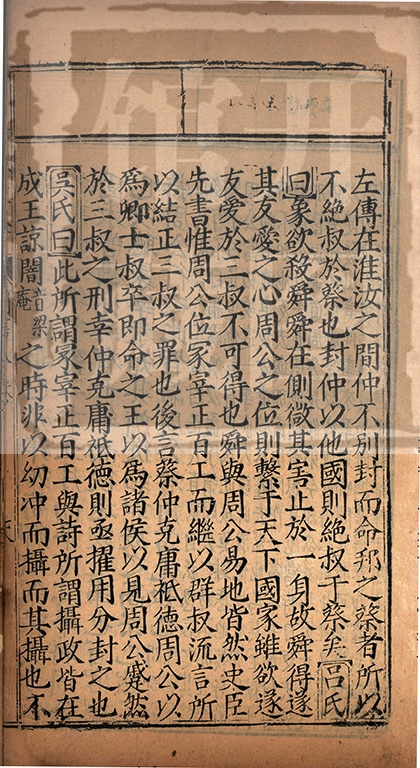 左傳在淮汝之間仲不别封而命邦之蔡者所以
不絶叔於蔡也封仲以他國則絶叔于蔡矣吕氏
曰象欲殺舜舜在側微其害止於一身故舜得遂
其友愛之心周公之位則繫于天下國家雖欲遂
友愛於三叔不可得也舜與周公易地皆然史臣
先書惟周公位冢宰正百工而繼以群叔流言所
以結正三叔之罪也後言蔡仲克庸祗德周公以
爲卿士叔卒即命之王以爲諸侯以見周公蹙然
於三叔之刑幸仲克庸祗德則亟擢用分封之也
吳氏曰此所謂冢宰正百工與詩所謂攝政皆在
成王諒闇音梁菴之時非以幼冲而攝而其攝也不